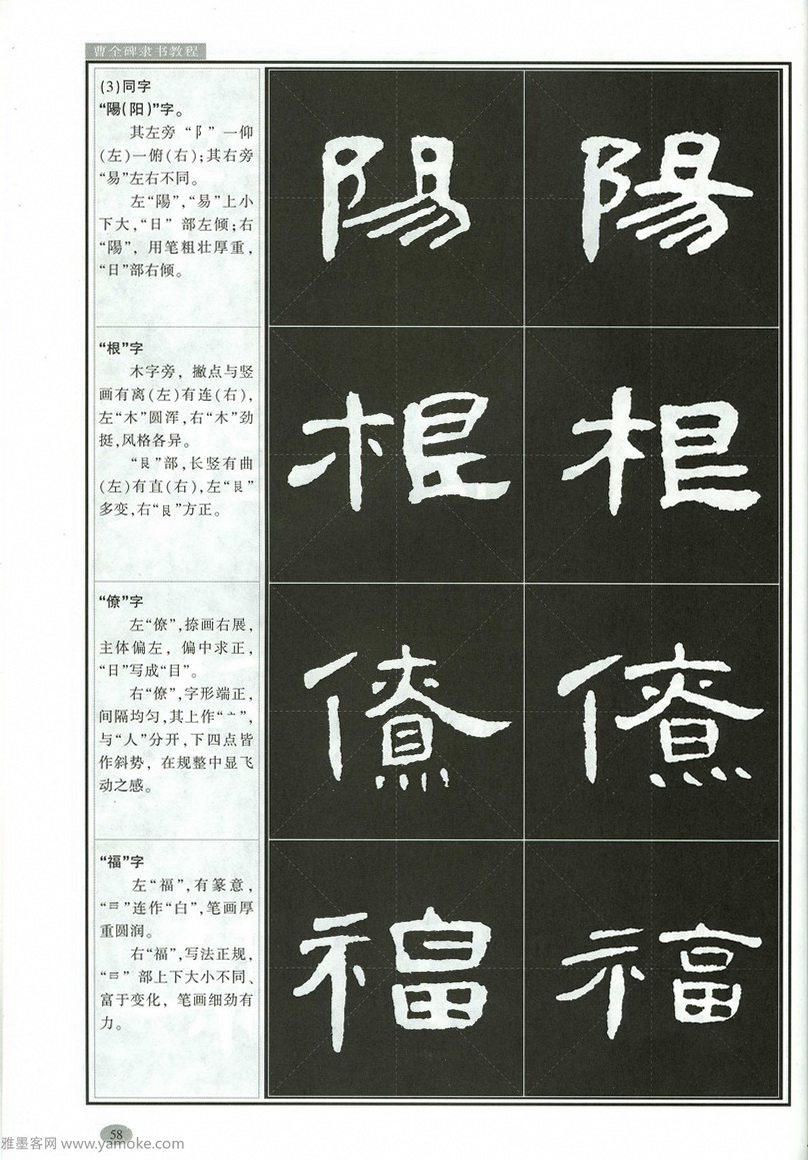 曹全碑隶书教程
(3)同字
“陽(阳)”字。
其左旁“阝”一仰
(左)一俯(右);其右旁
“昜”左右不同。
左“陽”,“昜”上小
下大,“日”部左倾;右
“陽”,用笔粗壮厚重,
“日”部右倾。
陽 陽
“根”字
木字旁,撇点与竖
画有离(左)有连(右),
左“木”圆浑,右“木”劲
挺,风格各异。
“艮”部,长竖有曲
(左)有直(右),左“艮”
多变,右“艮”方正。
根 根
“僚”字
左“僚”,捺画右展,
主体偏左,偏中求正,
“日”写成“目”。
右“僚”,字形端正,
间隔均匀,其上作“亠”,
与“人”分开,下四点皆
作斜势,在规整中显飞
动之感。
僚 僚
“福”字
左“福”,有篆意,
连作“白”,笔画厚
重圆润。
右“福”,写法正规,
部上下大小不同、
富于变化,笔画细劲有
力。
福 福
58
雅墨客网 www.yamoke.com